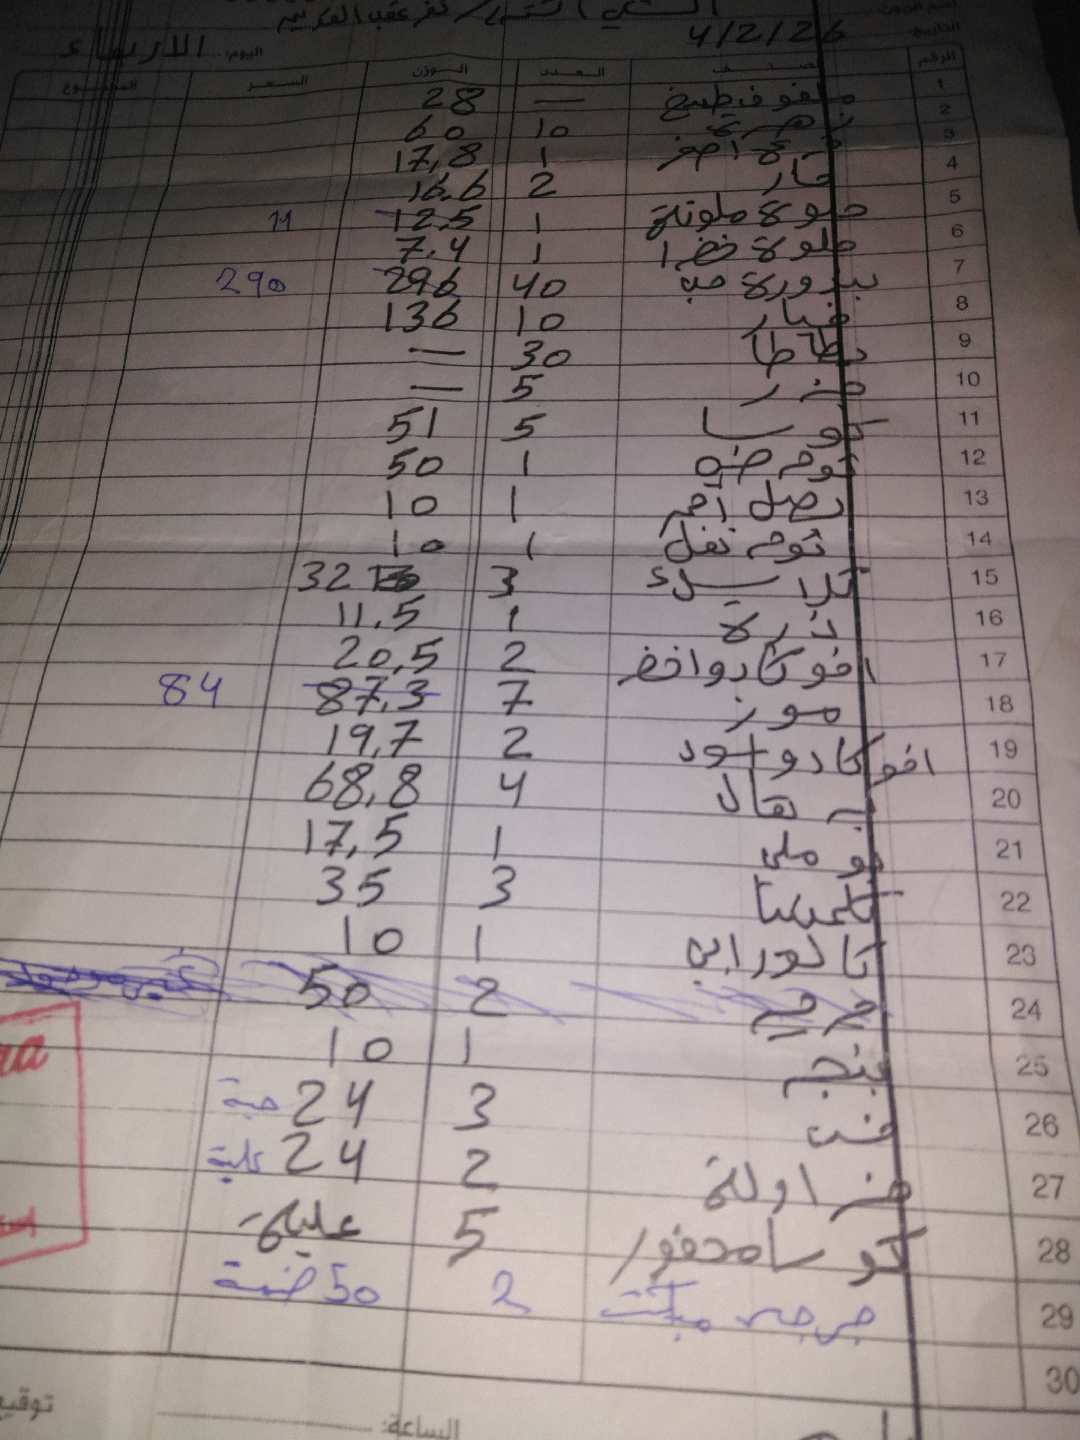 4/2/26
اليوم: الاربعاء
الرقم العدد الوزن السعر
1 ملفوف طبيخ — 28
2 زهرة 10 60
3 17,8 1
4 حار 2 16.6
5 حلوة ملونة 1 12.5 11
6 حلوة خضرا 1 7.4
7 بندورة حب 40 296 290
8 خيار 10 136
9 بطاطا 30 —
10 جزر 5 —
11 كوسا 5 51
12 ثوم 1 50
13 بصل أحمر 1 10
14 ثوم 1 10
15 3
16 ذرة 1 11.5
17 افوكادو اخضر 2 20,5
18 موز 7 87,3 84
19 افوكادو اسود 2 19,7
20 برتقال 4 68,8
21 بوملي 1 17,5
22 كلمنتينا 3 35
23 كالورابي 1 10
24 جرجير 2 50
25 بنجر 1 10
26 خس 3 24 حبة
27 فراولة 2 24 علبة
28 كوسا محفور 5
29 جرجير 2 50 ضمة
30
الساعة:
توقيع